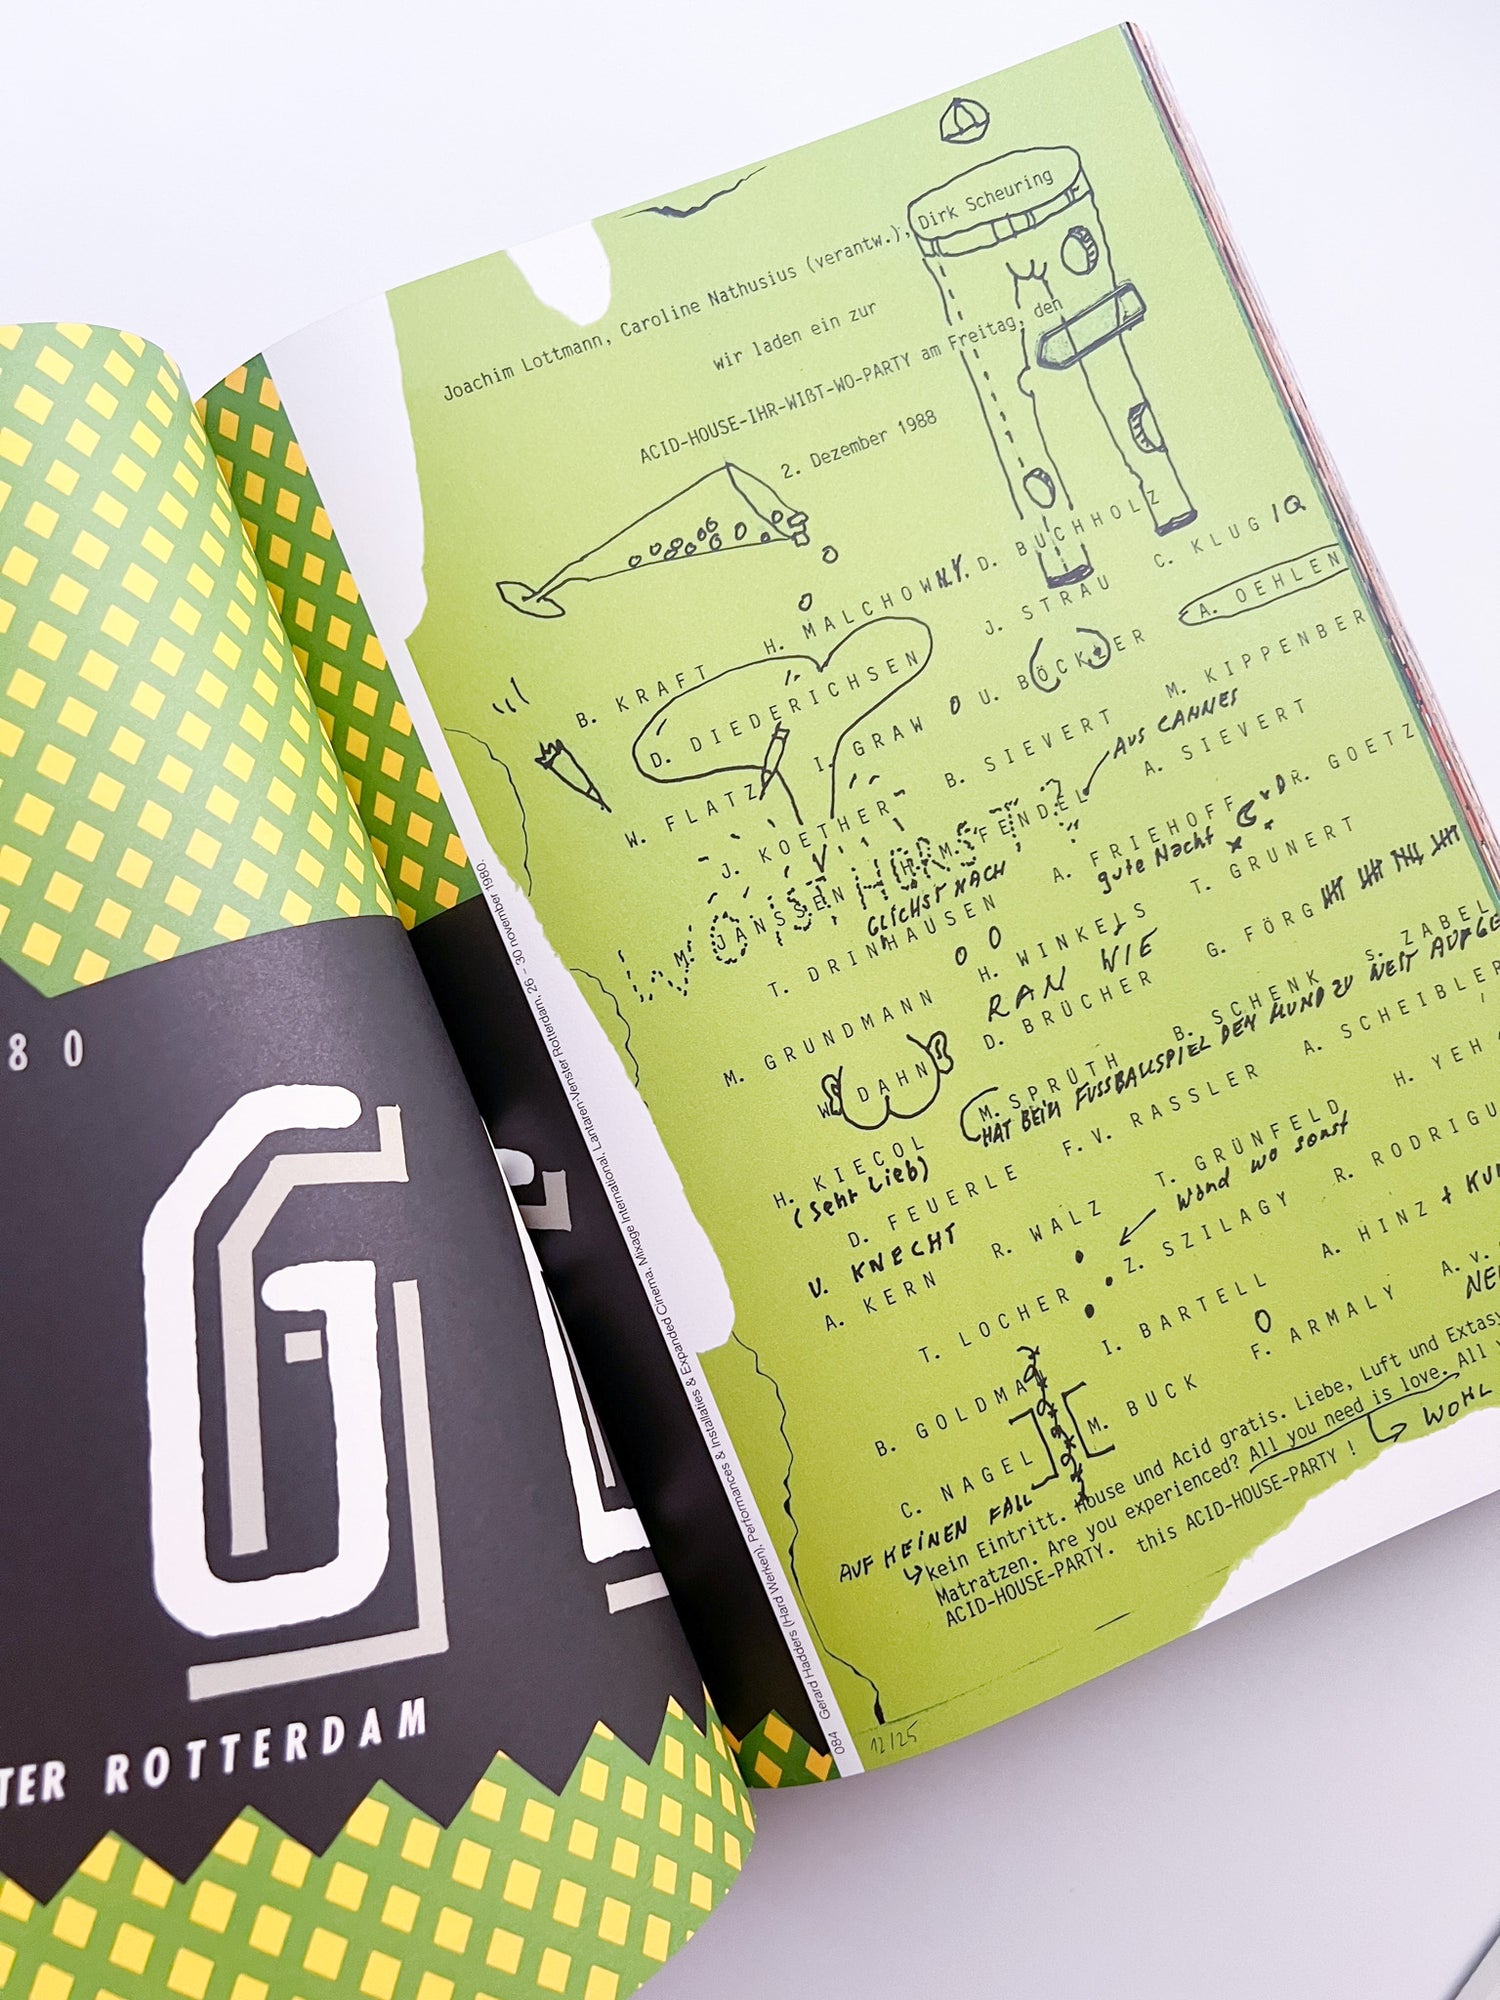 8 0
G
TER ROTTERDAM
084 Gerard Hadders (Hard Werken), Performances & Installaties & Expanded Cinema, Mixage International, Lantaren-Venster Rotterdam, 26 – 30 november 1980.
Joachim Lottmann, Caroline Nathusius (verantw.), Dirk Scheuring
wir laden ein zur
ACID-HOUSE-IHR-WIßT-WO-PARTY am Freitag, den
2. Dezember 1988
B. KRAFT H. MALCHOW N.Y. D. BUCHHOLZ
D. DIEDERICHSEN J. STRAU C. KLUG IQ
W. FLATZ I. GRAW U. BÖCKLER A. OEHLEN
J. KOETHER B. SIEVERT M. KIPPENBER
AUS CANNES
W. JANSSEN H. M. FENDEL A. SIEVERT
GLICHST NACH
T. DRINHAUSEN A. FRIEHOFF DR. GOETZ
gute Nacht
M. GRUNDMANN H. WINKELS T. GRUNERT
RAN WIE
W. DAHN D. BRÜCHER G. FÖRG
H. KIECOL M. SPRÜTH B. SCHENK S. ZABEL
(sehr lieb)
HAT BEIM FUSSBALLSPIEL DEN MUND ZU WEIT AUFGE
D. FEUERLE F.V. RASSLER A. SCHEIBLER
U. KNECHT
A. KERN R. WALZ T. GRÜNFELD H. YEH
wand wo sonst
T. LOCHER Z. SZILAGY R. RODRIGU
B. GOLDMA I. BARTELL A. HINZ + KU
C. NAGEL M. BUCK F. ARMALY A. V.
NE
AUF KEINEN FALL
kein Eintritt. House und Acid gratis. Liebe, Luft und Extasy
Matratzen. Are you experienced? All you need is love. All
ACID-HOUSE-PARTY. this ACID-HOUSE-PARTY !
WOHL
12/25